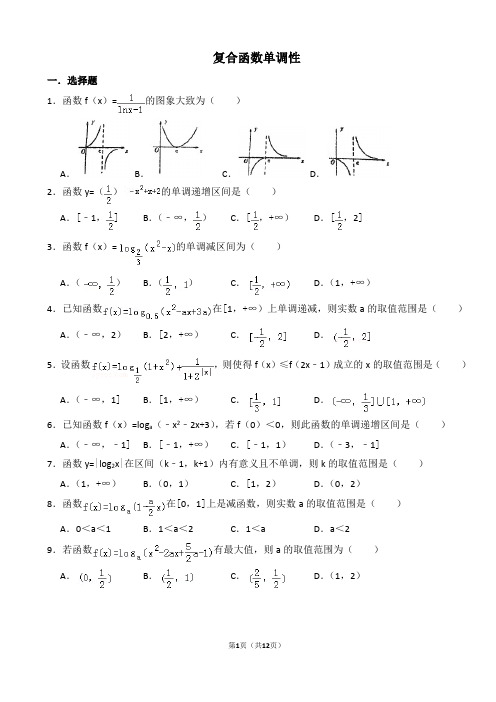 复合函数单调性
一．选择题
1．函数 f（x）=1/(lnx-1)的图象大致为（　　）
A． B． C． D．
2．函数 y=（1/2）^(-x²+x+2)的单调递增区间是（　　）
A．[﹣1，1/2] B．（﹣∞，1/2） C．[1/2，+∞） D．[1/2，2]
3．函数 f（x）=log_(2/3)(x²-x)的单调减区间为（　　）
A．（-∞，1/2） B．（1/2，1） C．[1/2，+∞) D．（1，+∞）
4．已知函数f(x)=log_0.5(x²-ax+3a)在[1，+∞）上单调递减，则实数 a 的取值范围是（　　）
A．（﹣∞，2） B．[2，+∞） C．[-1/2，2] D．(-1/2，2]
5．设函数f(x)=log_(1/2)(1+x²)+1/(1+2|x|)，则使得 f（x）≤f（2x﹣1）成立的 x 的取值范围是（　　）
A．（﹣∞，1] B．[1，+∞） C．[1/3，1] D．(-∞，1/3]∪[1，+∞)
6．已知函数 f（x）=logₐ（﹣x²﹣2x+3），若 f（0）＜0，则此函数的单调递增区间是（　　）
A．（﹣∞，﹣1] B．[﹣1，+∞） C．[﹣1，1） D．（﹣3，﹣1]
7．函数 y=|log₂x|在区间（k﹣1，k+1）内有意义且不单调，则 k 的取值范围是（　　）
A．（1，+∞） B．（0，1） C．[1，2） D．（0，2）
8．函数f(x)=logₐ(1-a/2 x)在[0，1]上是减函数，则实数 a 的取值范围是（　　）
A．0＜a＜1 B．1＜a＜2 C．1＜a D．a＜2
9．若函数f(x)=logₐ(x²-2ax+5/2 a-1)有最大值，则 a 的取值范围为（　　）
A．(0，1/2) B．(1/2，1) C．(2/5，1/2) D．（1，2）
第1页（共12页）